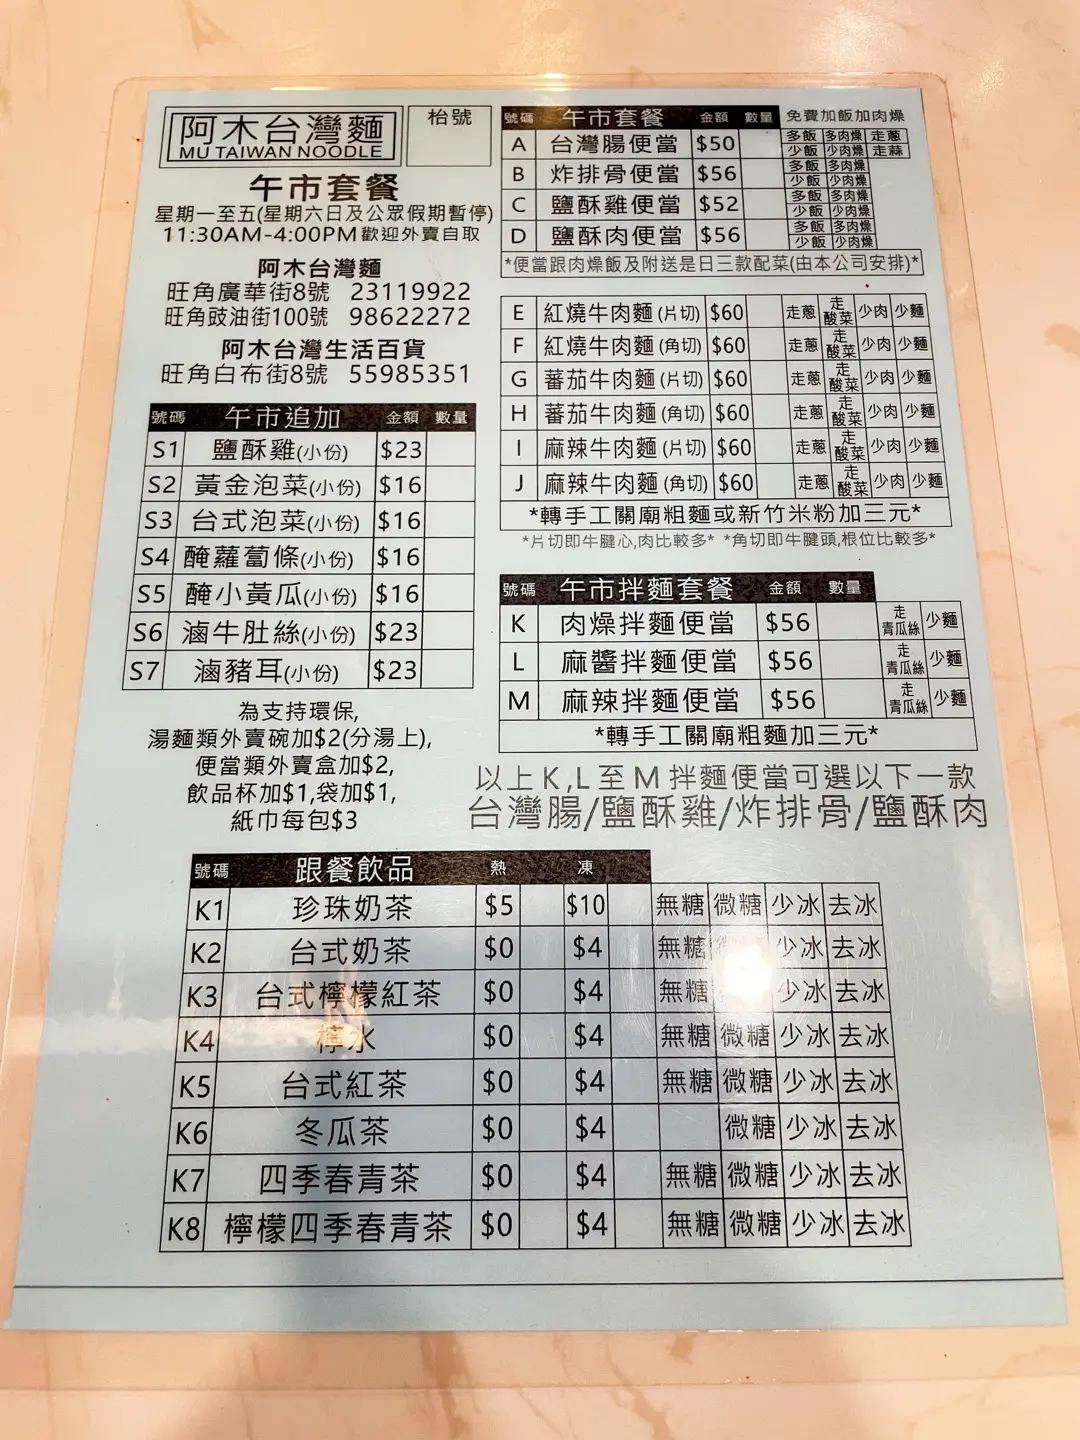 阿木台灣麵
MU TAIWAN NOODLE
枱號
午市套餐
星期一至五(星期六日及公眾假期暫停)
11:30AM-4:00PM歡迎外賣自取
阿木台灣麵
旺角廣華街8號 23119922
旺角豉油街100號 98622272
阿木台灣生活百貨
旺角白布街8號 55985351
號碼 午市追加 金額 數量
S1 鹽酥雞(小份) $23
S2 黃金泡菜(小份) $16
S3 台式泡菜(小份) $16
S4 醃蘿蔔條(小份) $16
S5 醃小黃瓜(小份) $16
S6 滷牛肚絲(小份) $23
S7 滷豬耳(小份) $23
為支持環保,
湯麵類外賣碗加$2(分湯上),
便當類外賣盒加$2,
飲品杯加$1,袋加$1,
紙巾每包$3
號碼 午市套餐 金額 數量 免費加飯加肉燥
A 台灣腸便當 $50 多飯 多肉燥 走蔥
少飯 少肉燥 走蒜
B 炸排骨便當 $56 多飯 多肉燥
少飯 少肉燥
C 鹽酥雞便當 $52 多飯 多肉燥
少飯 少肉燥
D 鹽酥肉便當 $56 多飯 多肉燥
少飯 少肉燥
*便當跟肉燥飯及附送是日三款配菜(由本公司安排)*
E 紅燒牛肉麵(片切) $60 走蔥 走酸菜 少肉 少麵
F 紅燒牛肉麵(角切) $60 走蔥 走酸菜 少肉 少麵
G 蕃茄牛肉麵(片切) $60 走蔥 走酸菜 少肉 少麵
H 蕃茄牛肉麵(角切) $60 走蔥 走酸菜 少肉 少麵
I 麻辣牛肉麵(片切) $60 走蔥 走酸菜 少肉 少麵
J 麻辣牛肉麵(角切) $60 走蔥 走酸菜 少肉 少麵
*轉手工關廟粗麵或新竹米粉加三元*
*片切即牛腱心,肉比較多* *角切即牛腱頭,根位比較多*
號碼 午市拌麵套餐 金額 數量
K 肉燥拌麵便當 $56 走青瓜絲 少麵
L 麻醬拌麵便當 $56 走青瓜絲 少麵
M 麻辣拌麵便當 $56 走青瓜絲 少麵
*轉手工關廟粗麵加三元*
以上K,L至M拌麵便當可選以下一款
台灣腸/鹽酥雞/炸排骨/鹽酥肉
號碼 跟餐飲品 熱 凍
K1 珍珠奶茶 $5 $10 無糖 微糖 少冰 去冰
K2 台式奶茶 $0 $4 無糖 少冰 去冰
K3 台式檸檬紅茶 $0 $4 無糖 少冰 去冰
K4 檸水 $0 $4 無糖 微糖 少冰 去冰
K5 台式紅茶 $0 $4 無糖 微糖 少冰 去冰
K6 冬瓜茶 $0 $4 微糖 少冰 去冰
K7 四季春青茶 $0 $4 無糖 微糖 少冰 去冰
K8 檸檬四季春青茶 $0 $4 無糖 微糖 少冰 去冰